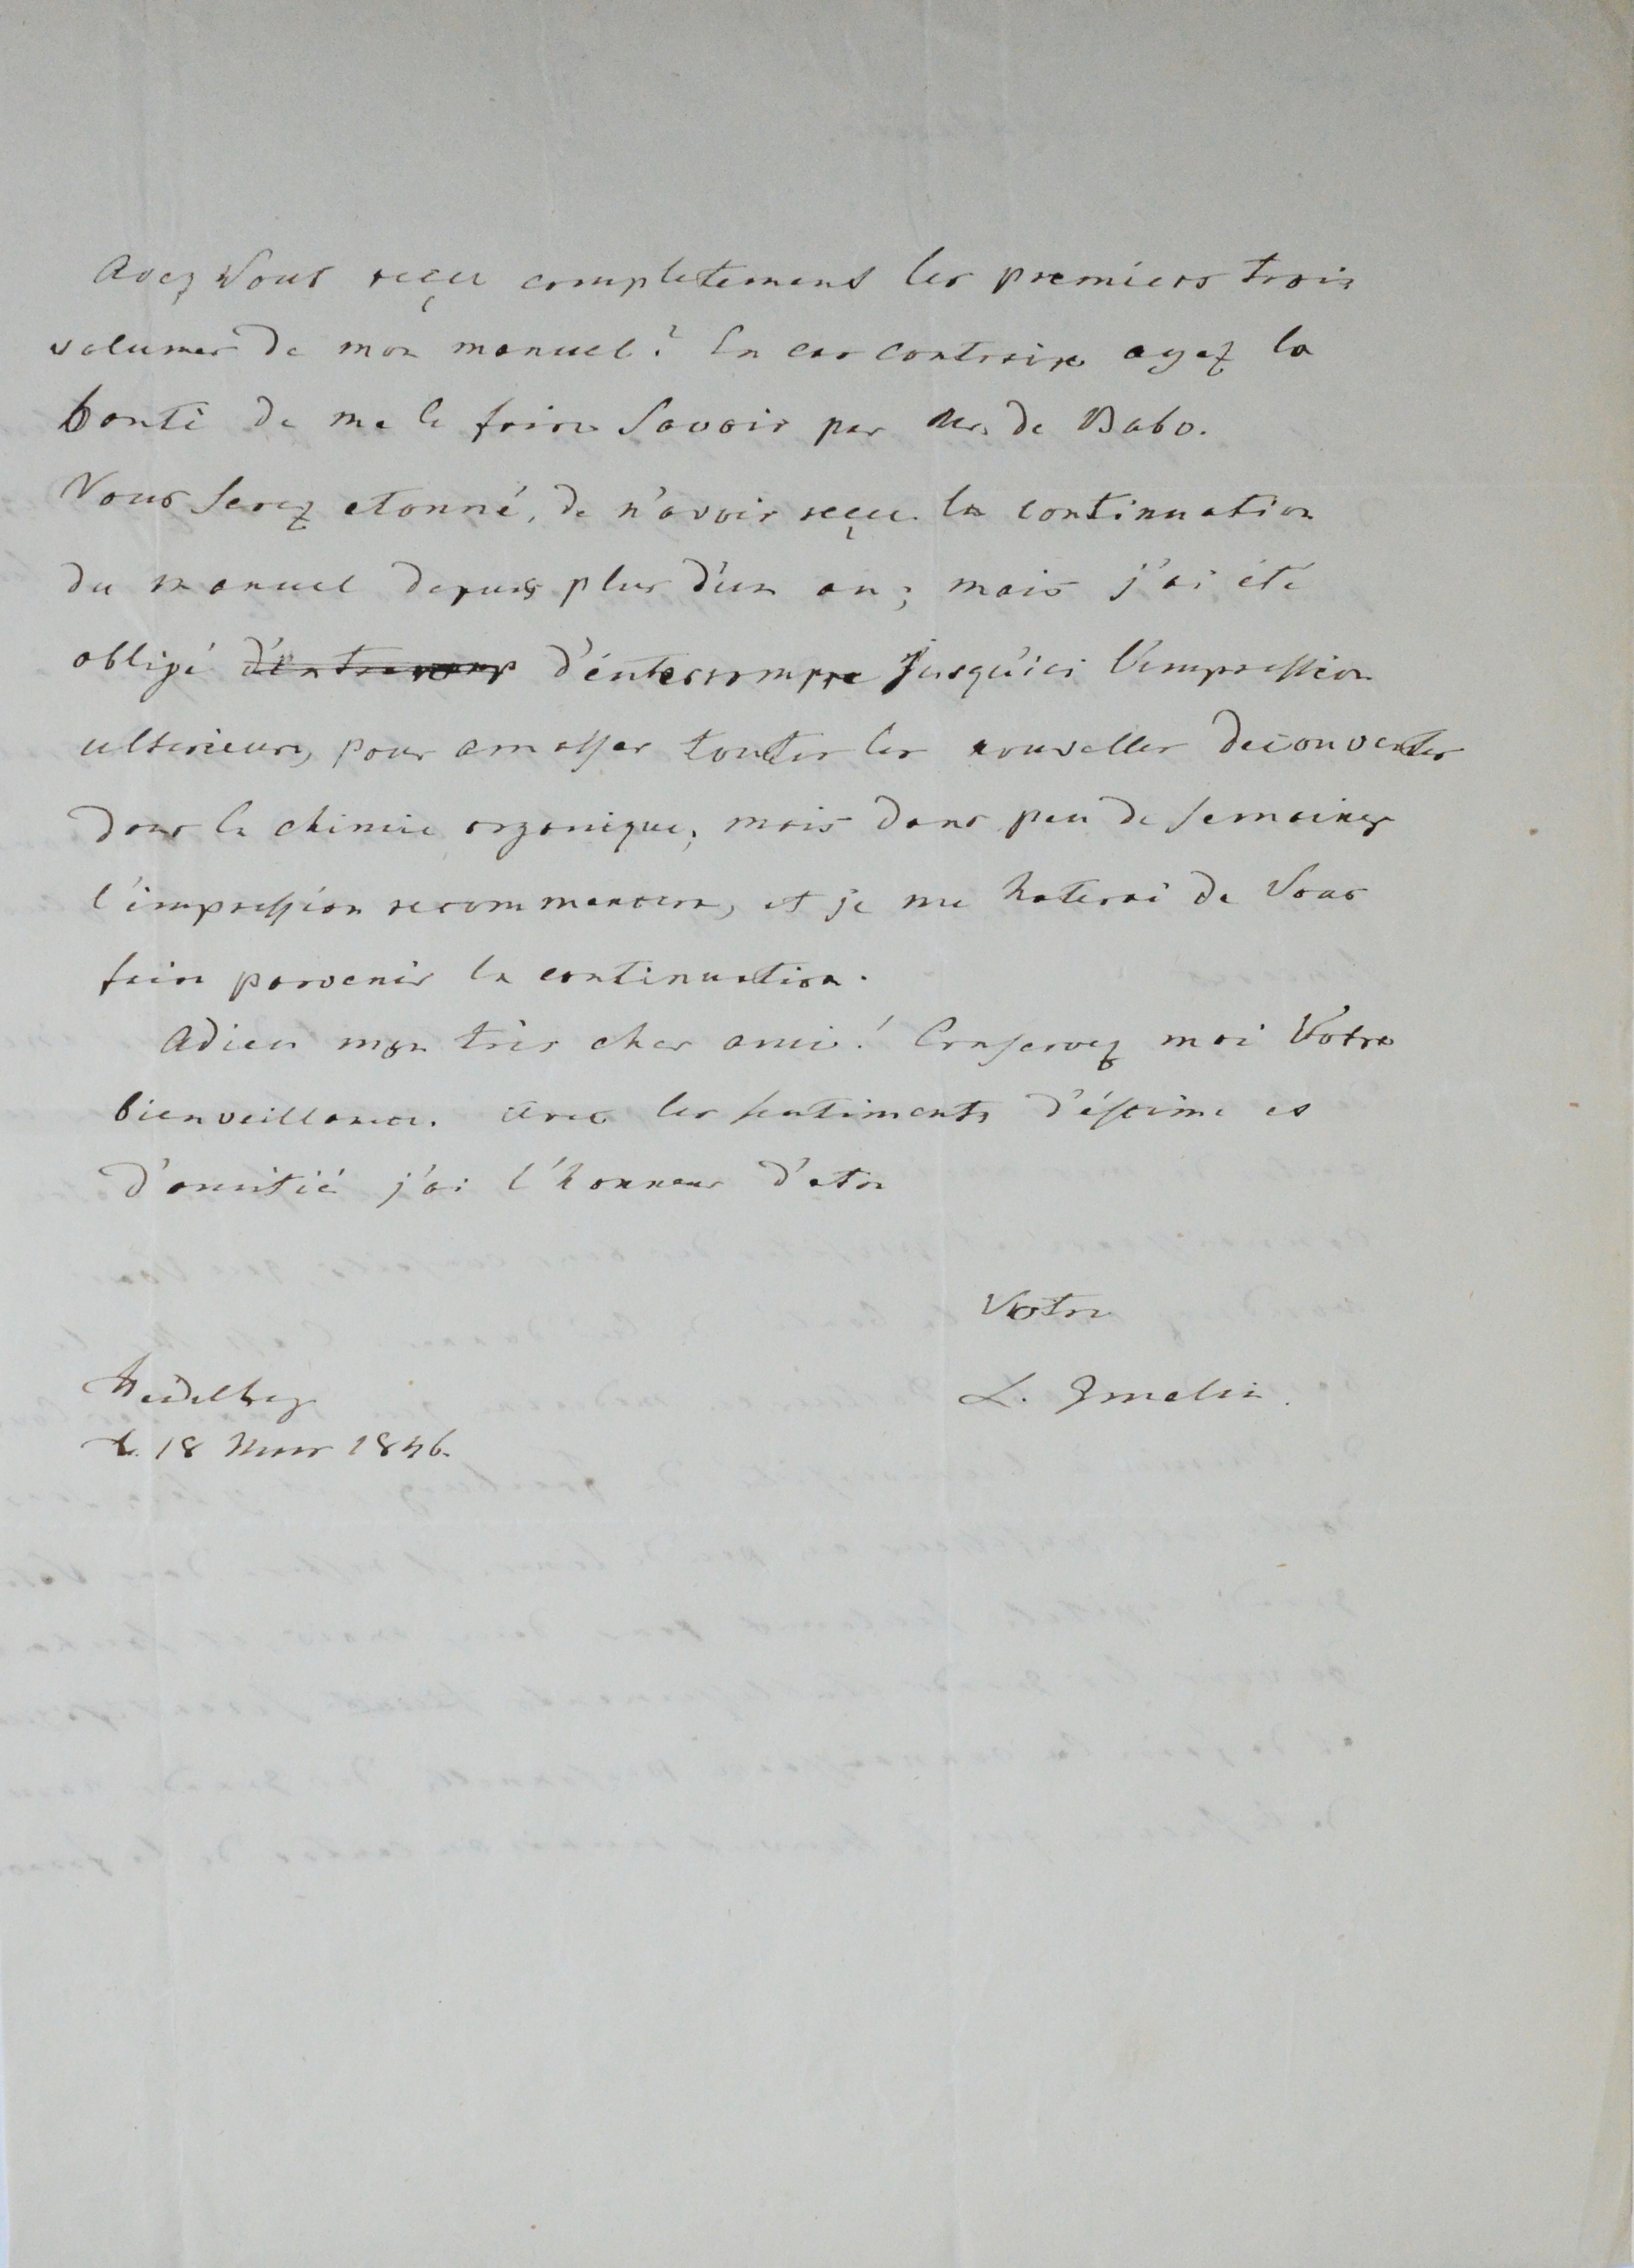 Avez Vous reçu completement les premiers trois
volumes de mon manuel? En cas contraire ayez la
bonté de me le faire Savoir par Mr. de Babo.
Vous Serez etonné, de n'avoir reçu la continuation
du manuel depuis plus d'un an; mais j'ai été
obligé d'entreromp d'énterrompre jusqu'ici l'impression
ulterieure, pour amasser toutes les nouvelles decouvertes
dans la chimie organique; mais dans peu de semaines
l'impression recommencera, et je me haterai de Vous
faire parvenir la continuation.
Adieu mon très cher ami! Conservez moi Votre
bienveillance. Avec les sentiments d'éstime et
d'amitié j'ai l'honneur d'etre
Votre
L. Gmelin.
Heidelberg
d. 18 1846.